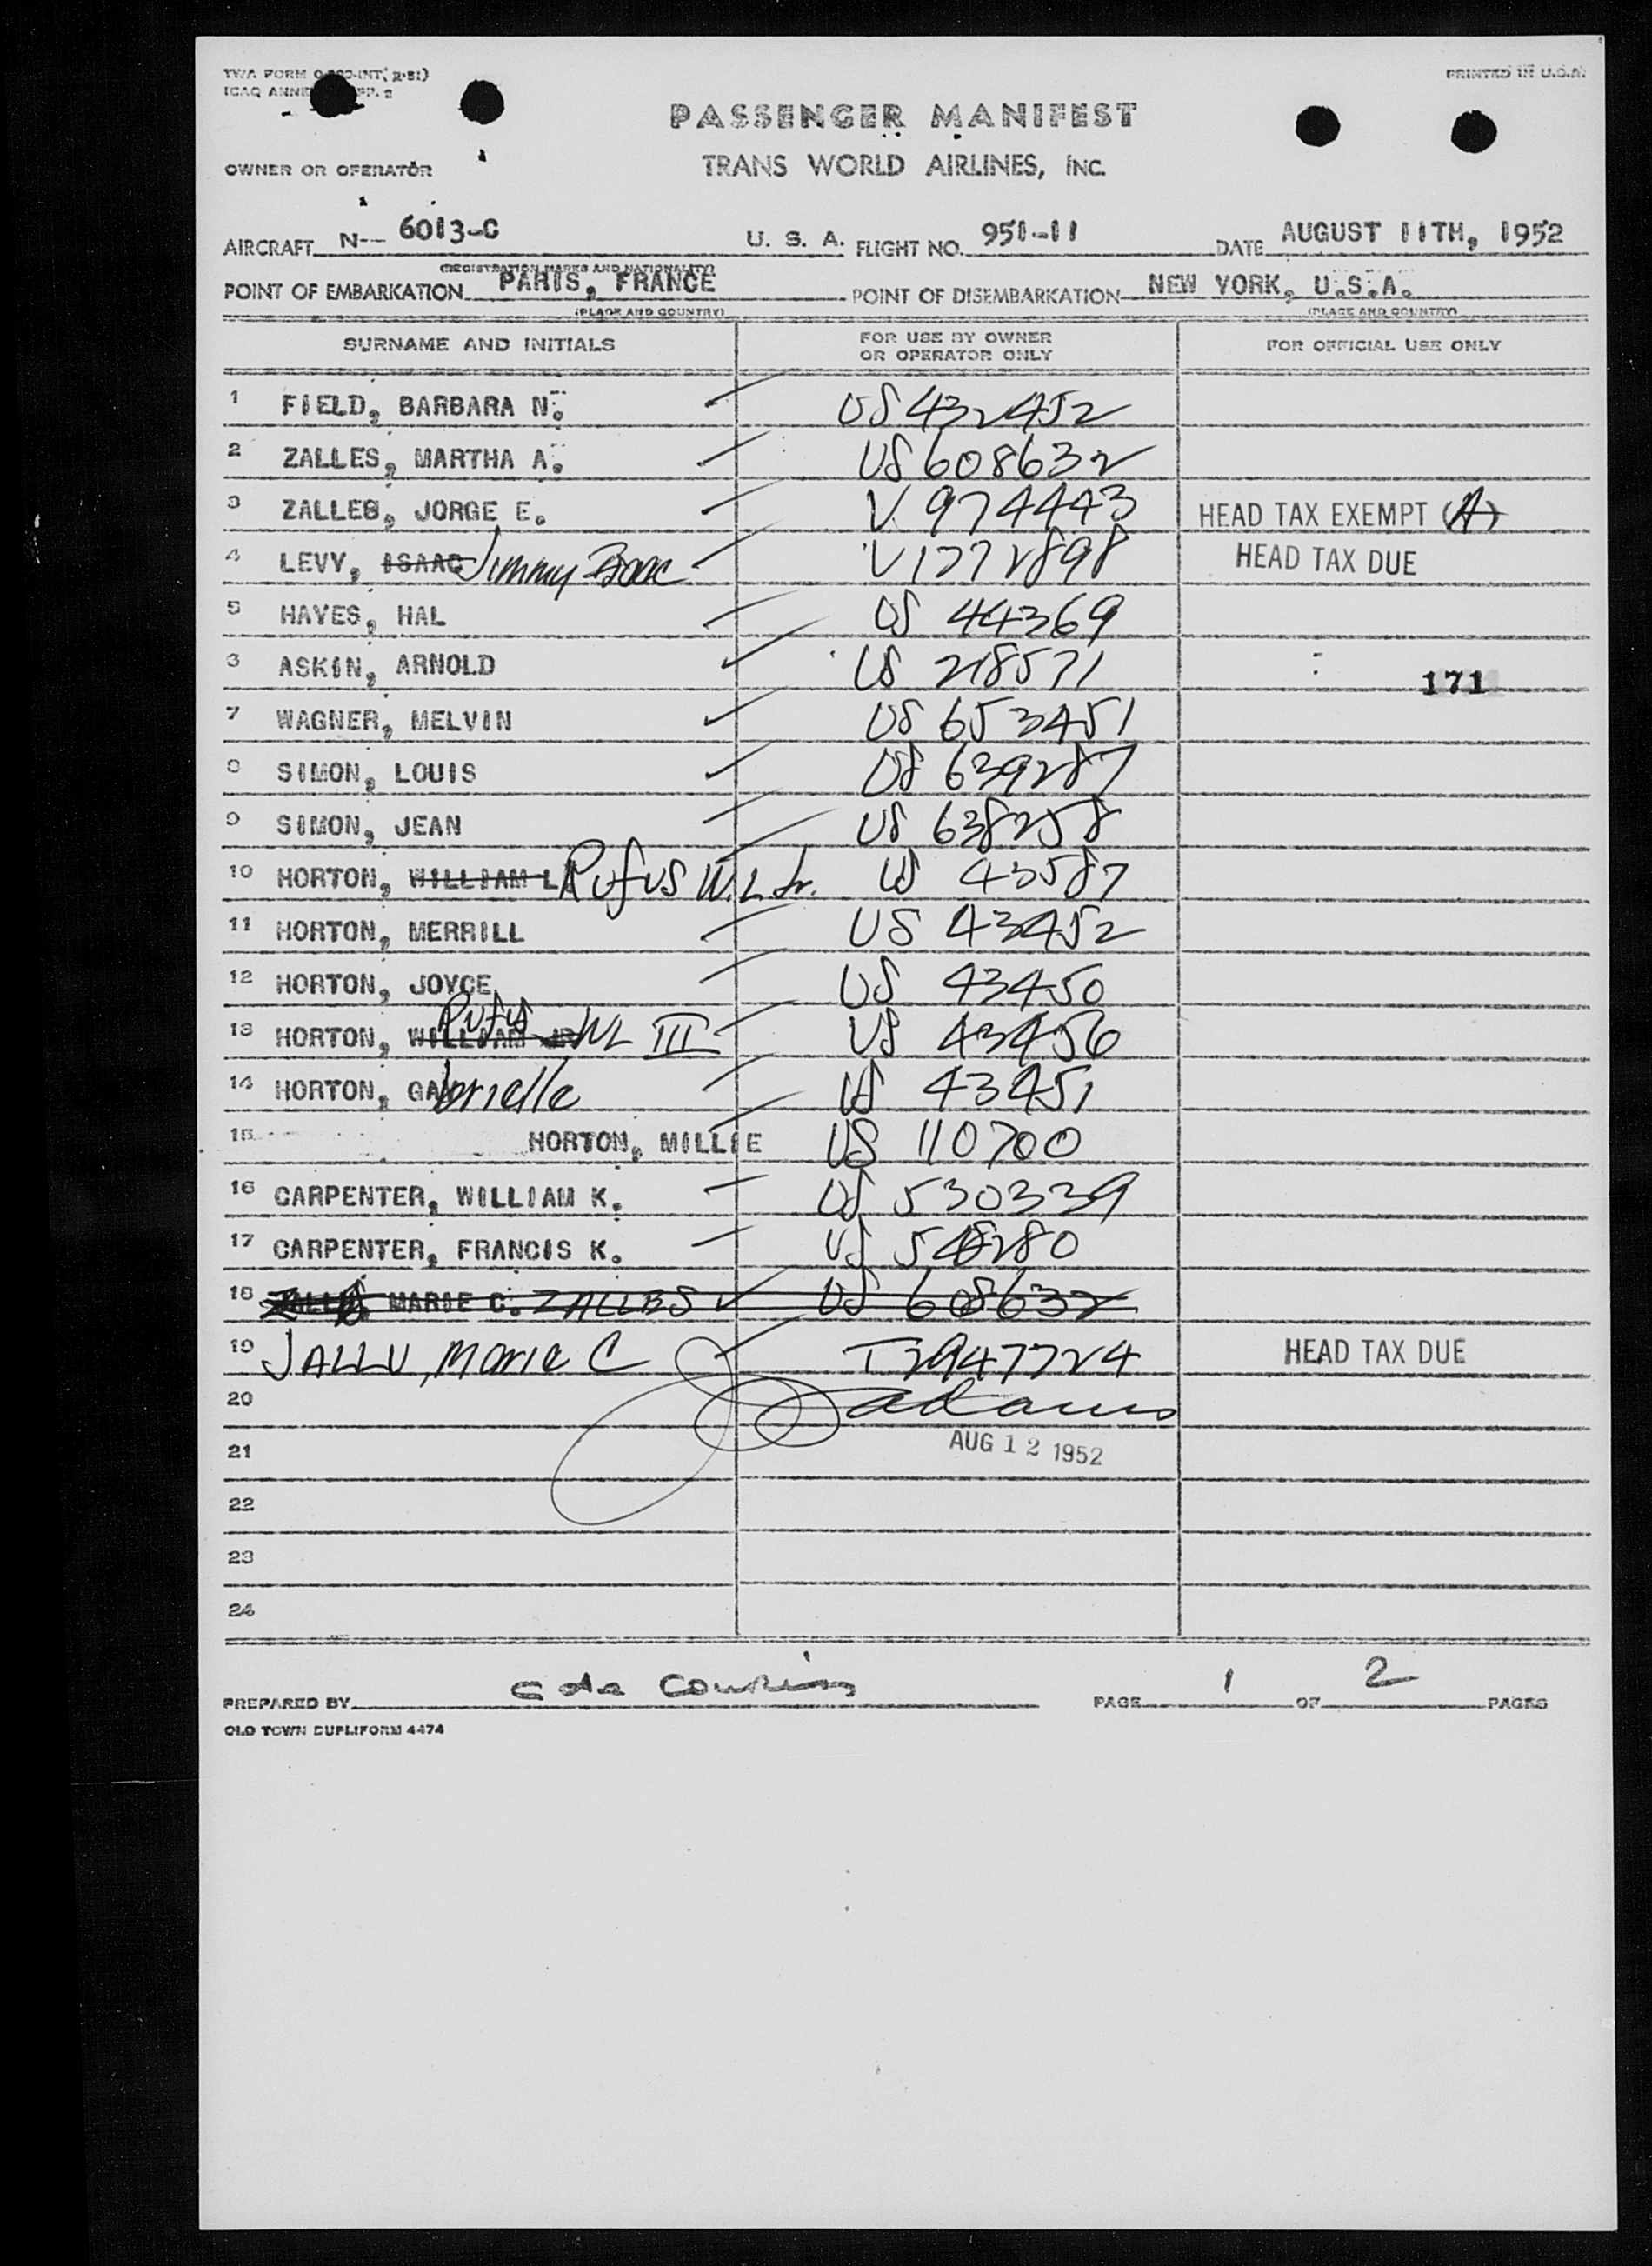 TWA FORM INT( 2-51)
ICAO ANNE PP. 2
PRINTED IN U.S.A.
PASSENGER MANIFEST
OWNER OR OPERATOR
TRANS WORLD AIRLINES, INC.
AIRCRAFT N-- 6013-C U. S. A. FLIGHT NO. 951-11 DATE AUGUST 11TH, 1952
(REGISTRATION MARKS AND NATIONALITY)
POINT OF EMBARKATION PARIS, FRANCE POINT OF DISEMBARKATION NEW YORK, U.S.A.
(PLACE AND COUNTRY) (PLACE AND COUNTRY)
SURNAME AND INITIALS FOR USE BY OWNER OR OPERATOR ONLY FOR OFFICIAL USE ONLY
1 FIELD, BARBARA N. US 432452
2 ZALLES, MARTHA A. US 608632
3 ZALLES, JORGE E. V 974443 HEAD TAX EXEMPT (A)
4 LEVY, ISAAC Jimmy Isaac V 1772898 HEAD TAX DUE
5 HAYES, HAL US 44369
6 ASKIN, ARNOLD US 218571
171
7 WAGNER, MELVIN US 653451
8 SIMON, LOUIS US 639287
9 SIMON, JEAN US 638258
10 HORTON, WILLIAM L. Rufus W.L. Jr. US 43587
11 HORTON, MERRILL US 43452
12 HORTON, JOYCE US 43450
13 HORTON, WILLIAM JR Rufus WL III US 43456
14 HORTON, GABrielle US 43451
15 HORTON, MILLIE US 110700
16 CARPENTER, WILLIAM K. US 530339
17 CARPENTER, FRANCIS K. US 548280
18 MARIE C. ZALLES US 608632
19 JALLU, Marie C T2947724 HEAD TAX DUE
20 Adams
21 AUG 12 1952
22
23
24
PREPARED BY PAGE 1 OF 2 PAGES
OLD TOWN DUPLIFORM 4474